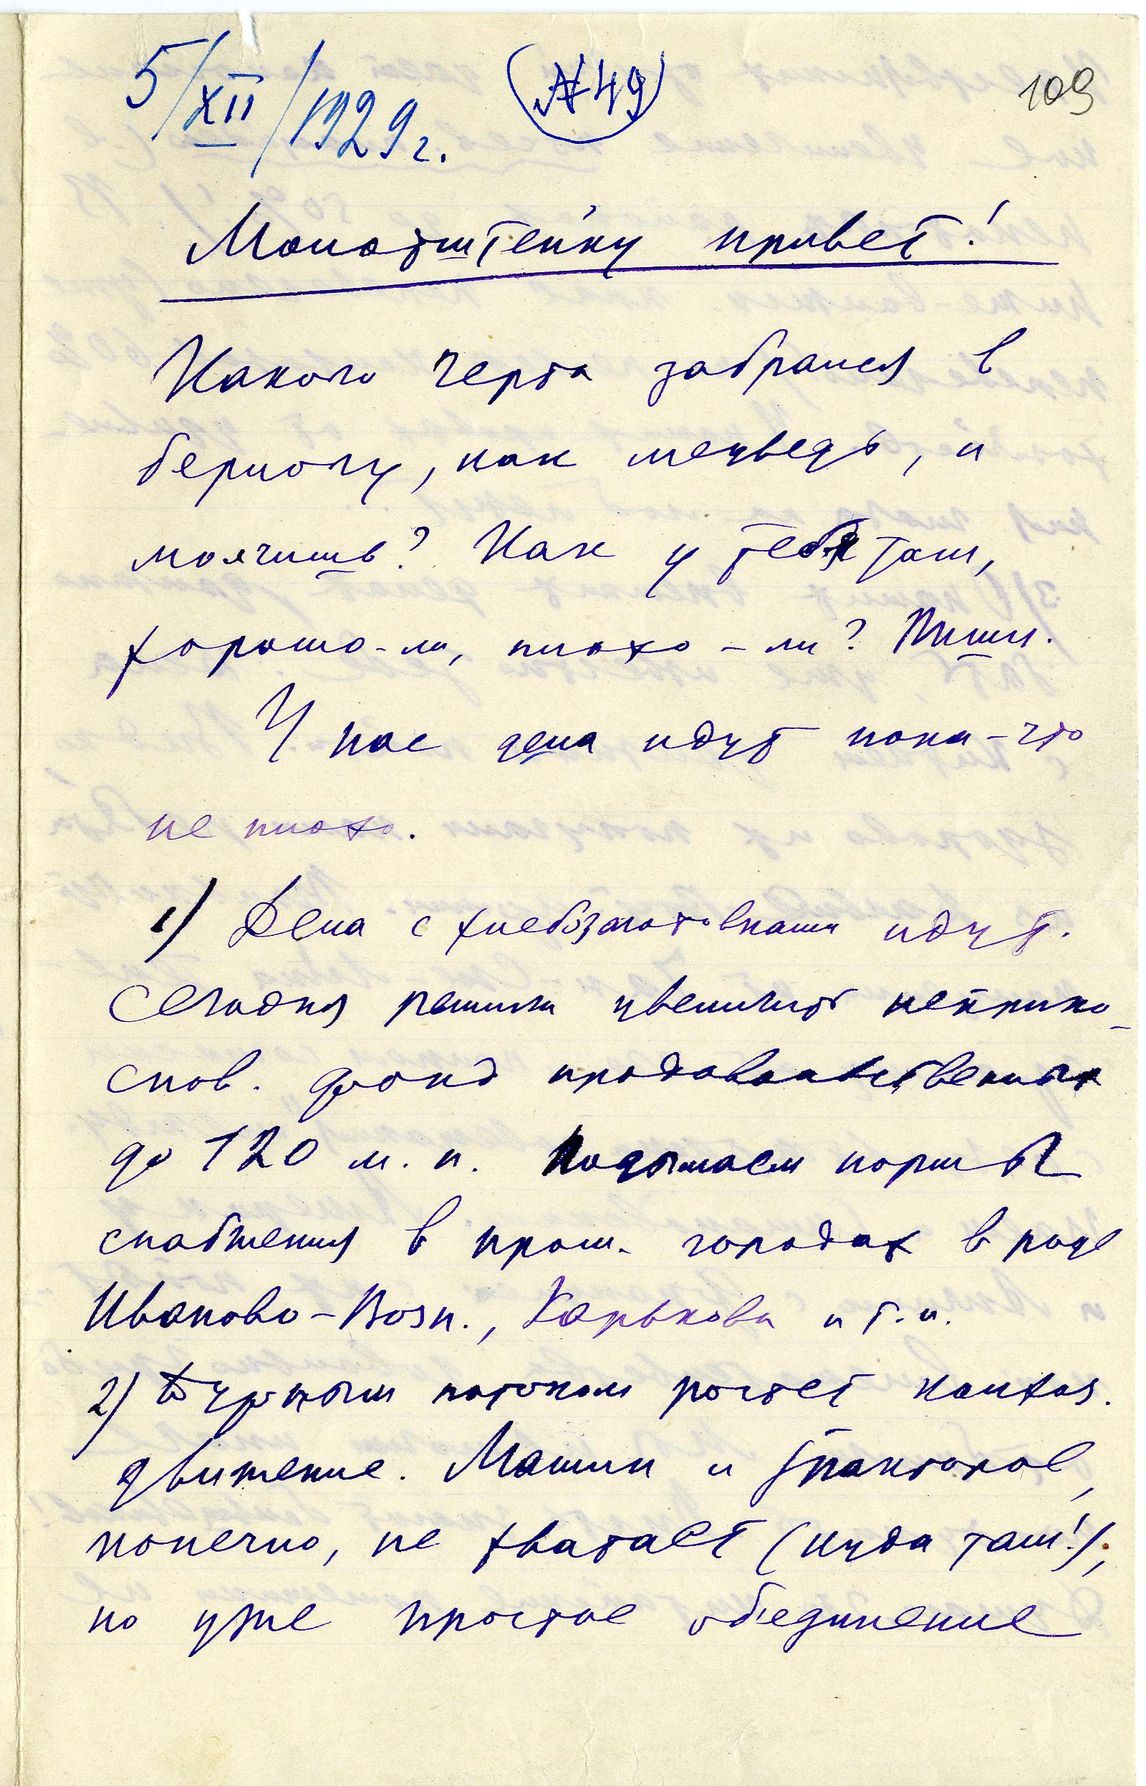 5/XII/1929 г.
№49
109
Молотштейну привет!
Какого черта забрался в
берлогу, как медведь, и
молчишь? Как у тебя там,
хорошо-ли, плохо-ли? Пиши.
У нас дела идут пока-что
не плохо.
1) Дела с хлебозаготовками идут.
Сегодня решили увеличить неприко-
снов. фонд продовольственный
до 120 м. п. Подымаем нормы
снабжения в пром. городах в роде
Иваново-Возн., Харькова и т.п.
2) Бурным потоком растет колхоз.
движение. Машин и тракторов,
конечно, не хватает (куда там!),
но уже простое объединение